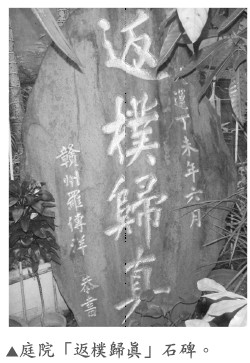 返樸歸真
歲運丁未年六月
贛州羅傳洋 恭書
▲庭院「返樸歸眞」石碑。